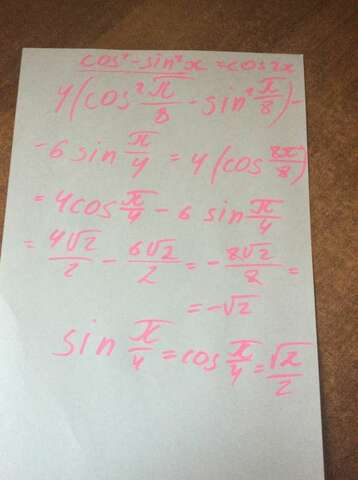 cos² - sin²x = cos2x
4(cos²π/8 - sin²π/8) -
- 6 sin π/4 = 4(cos 2π/8)
= 4cos π/4 - 6 sin π/4
= 4√2/2 - 6√2/2 = - 8√2/8 =
= -√2
sin π/4 = cos π/4 = √2/2